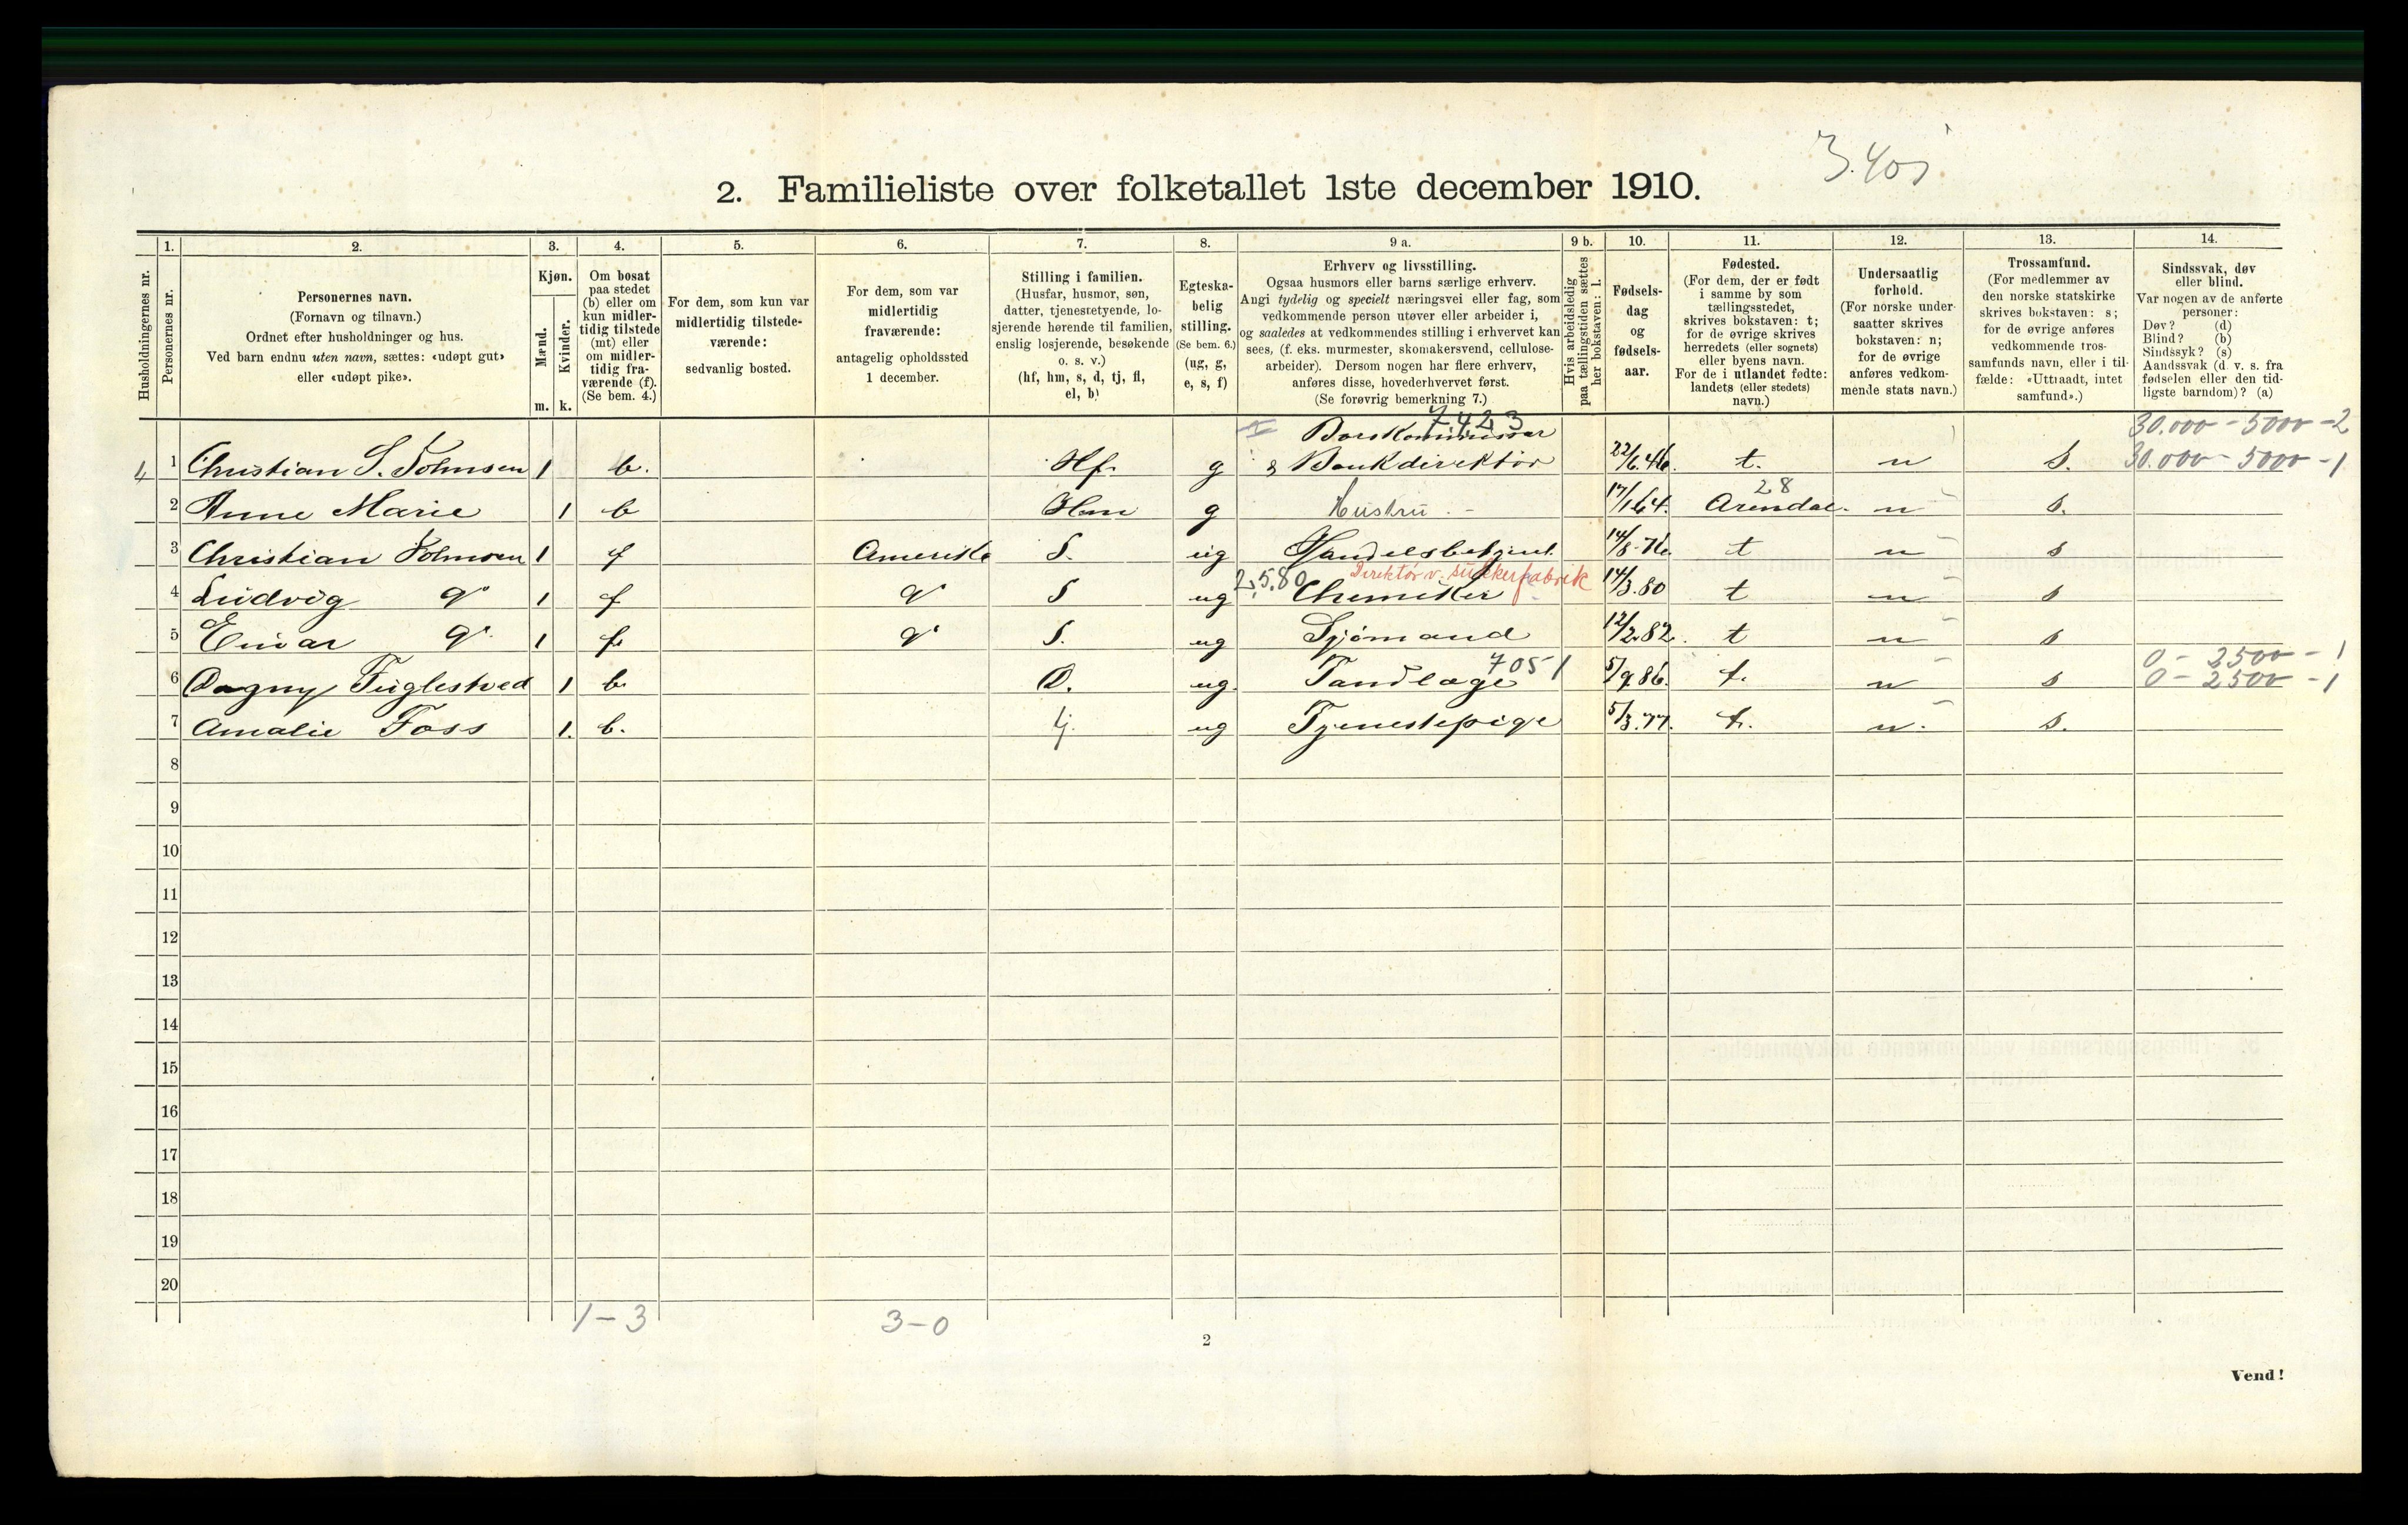 2. Familieliste over folketallet 1ste december 1910.
1. 2. 3. 4. 5. 6. 7. 8. 9 a. 9 b. 10. 11. 12. 13. 14.
Husholdningernes nr.
Personernes nr.
Personernes navn.
(Fornavn og tilnavn.)
Ordnet efter husholdninger og hus.
Ved barn endnu uten navn, sættes: «udøpt gut»
eller «udøpt pike».
Kjøn.
Mænd.
Kvinder.
m. k.
Om bosat
paa stedet
(b) eller om
kun midler-
tidig tilstede
(mt) eller
om midler-
tidig fra-
værende (f).
(Se bem. 4.)
For dem, som kun var
midlertidig tilstede-
værende:
sedvanlig bosted.
For dem, som var
midlertidig
fraværende:
antagelig opholdssted
1 december.
Stilling i familien.
(Husfar, husmor, søn,
datter, tjenestetyende, lo-
sjerende hørende til familien,
enslig losjerende, besøkende
o. s. v.)
(hf, hm, s, d, tj, fl,
el, b)
Egteska-
belig
stilling.
(Se bem. 6.)
(ug, g,
e, s, f)
Erhverv og livsstilling.
Ogsaa husmors eller barns særlige erhverv.
Angi tydelig og specielt næringsvei eller fag, som
vedkommende person utøver eller arbeider i,
og saaledes at vedkommendes stilling i erhvervet kan
sees, (f. eks. murmester, skomakersvend, cellulose-
arbeider). Dersom nogen har flere erhverv,
anføres disse, hovederhvervet først.
(Se forøvrig bemerkning 7.)
Hvis arbeidsledig
paa tællingstiden sættes
her bokstaven: l.
Fødsels-
dag
og
fødsels-
aar.
Fødested.
(For dem, der er født
i samme by som
tællingsstedet,
skrives bokstaven: t;
for de øvrige skrives
herredets (eller sognets)
eller byens navn.
For de i utlandet fødte:
landets (eller stedets)
navn.)
Undersaatlig
forhold.
(For norske under-
saatter skrives
bokstaven: n;
for de øvrige
anføres vedkom-
mende stats navn.)
Trossamfund.
(For medlemmer av
den norske statskirke
skrives bokstaven: s;
for de øvrige anføres
vedkommende tros-
samfunds navn, eller i til-
fælde: «Uttraadt, intet
samfund».)
Sindssvak, døv
eller blind.
Var nogen av de anførte
personer:
Døv? (d)
Blind? (b)
Sindssyk? (s)
Aandssvak (d. v. s. fra
fødselen eller den tid-
ligste barndom)? (a)
7423 30.000 - 5000 - 2
4 1 Christian S. 1 b. Hf. g & Bankdirektör 22/6.46. t. n s. 30.000 - 5000 - 1
28
2 Anne Marie 1 b Hm g Hustru 17/1 64. Arendal. n s.
3 Christian 1 f Amerika S. ug Handelsbetjent. 14/8-76. t n s
2.580 Direktør v. sukkerfabrik
4 Ludvig 1 f S ug Chemiker 14/3.80 t n s
5 Einar 1 f. S. ug Sjömand 12/2.82. t n s
7051 0 - 2500 - 1
6 Dagny Fuglestved 1 b. D. ug. Tandlæge 5/9 86. t. n s 0 - 2500 - 1
7 Amalie Foss 1. b. tj. ug Tjenestepige 5/3.77. t. n. s.
8
9
10
11
12
13
14
15
16
17
18
19
20
1-3 3-0
2
Vend!